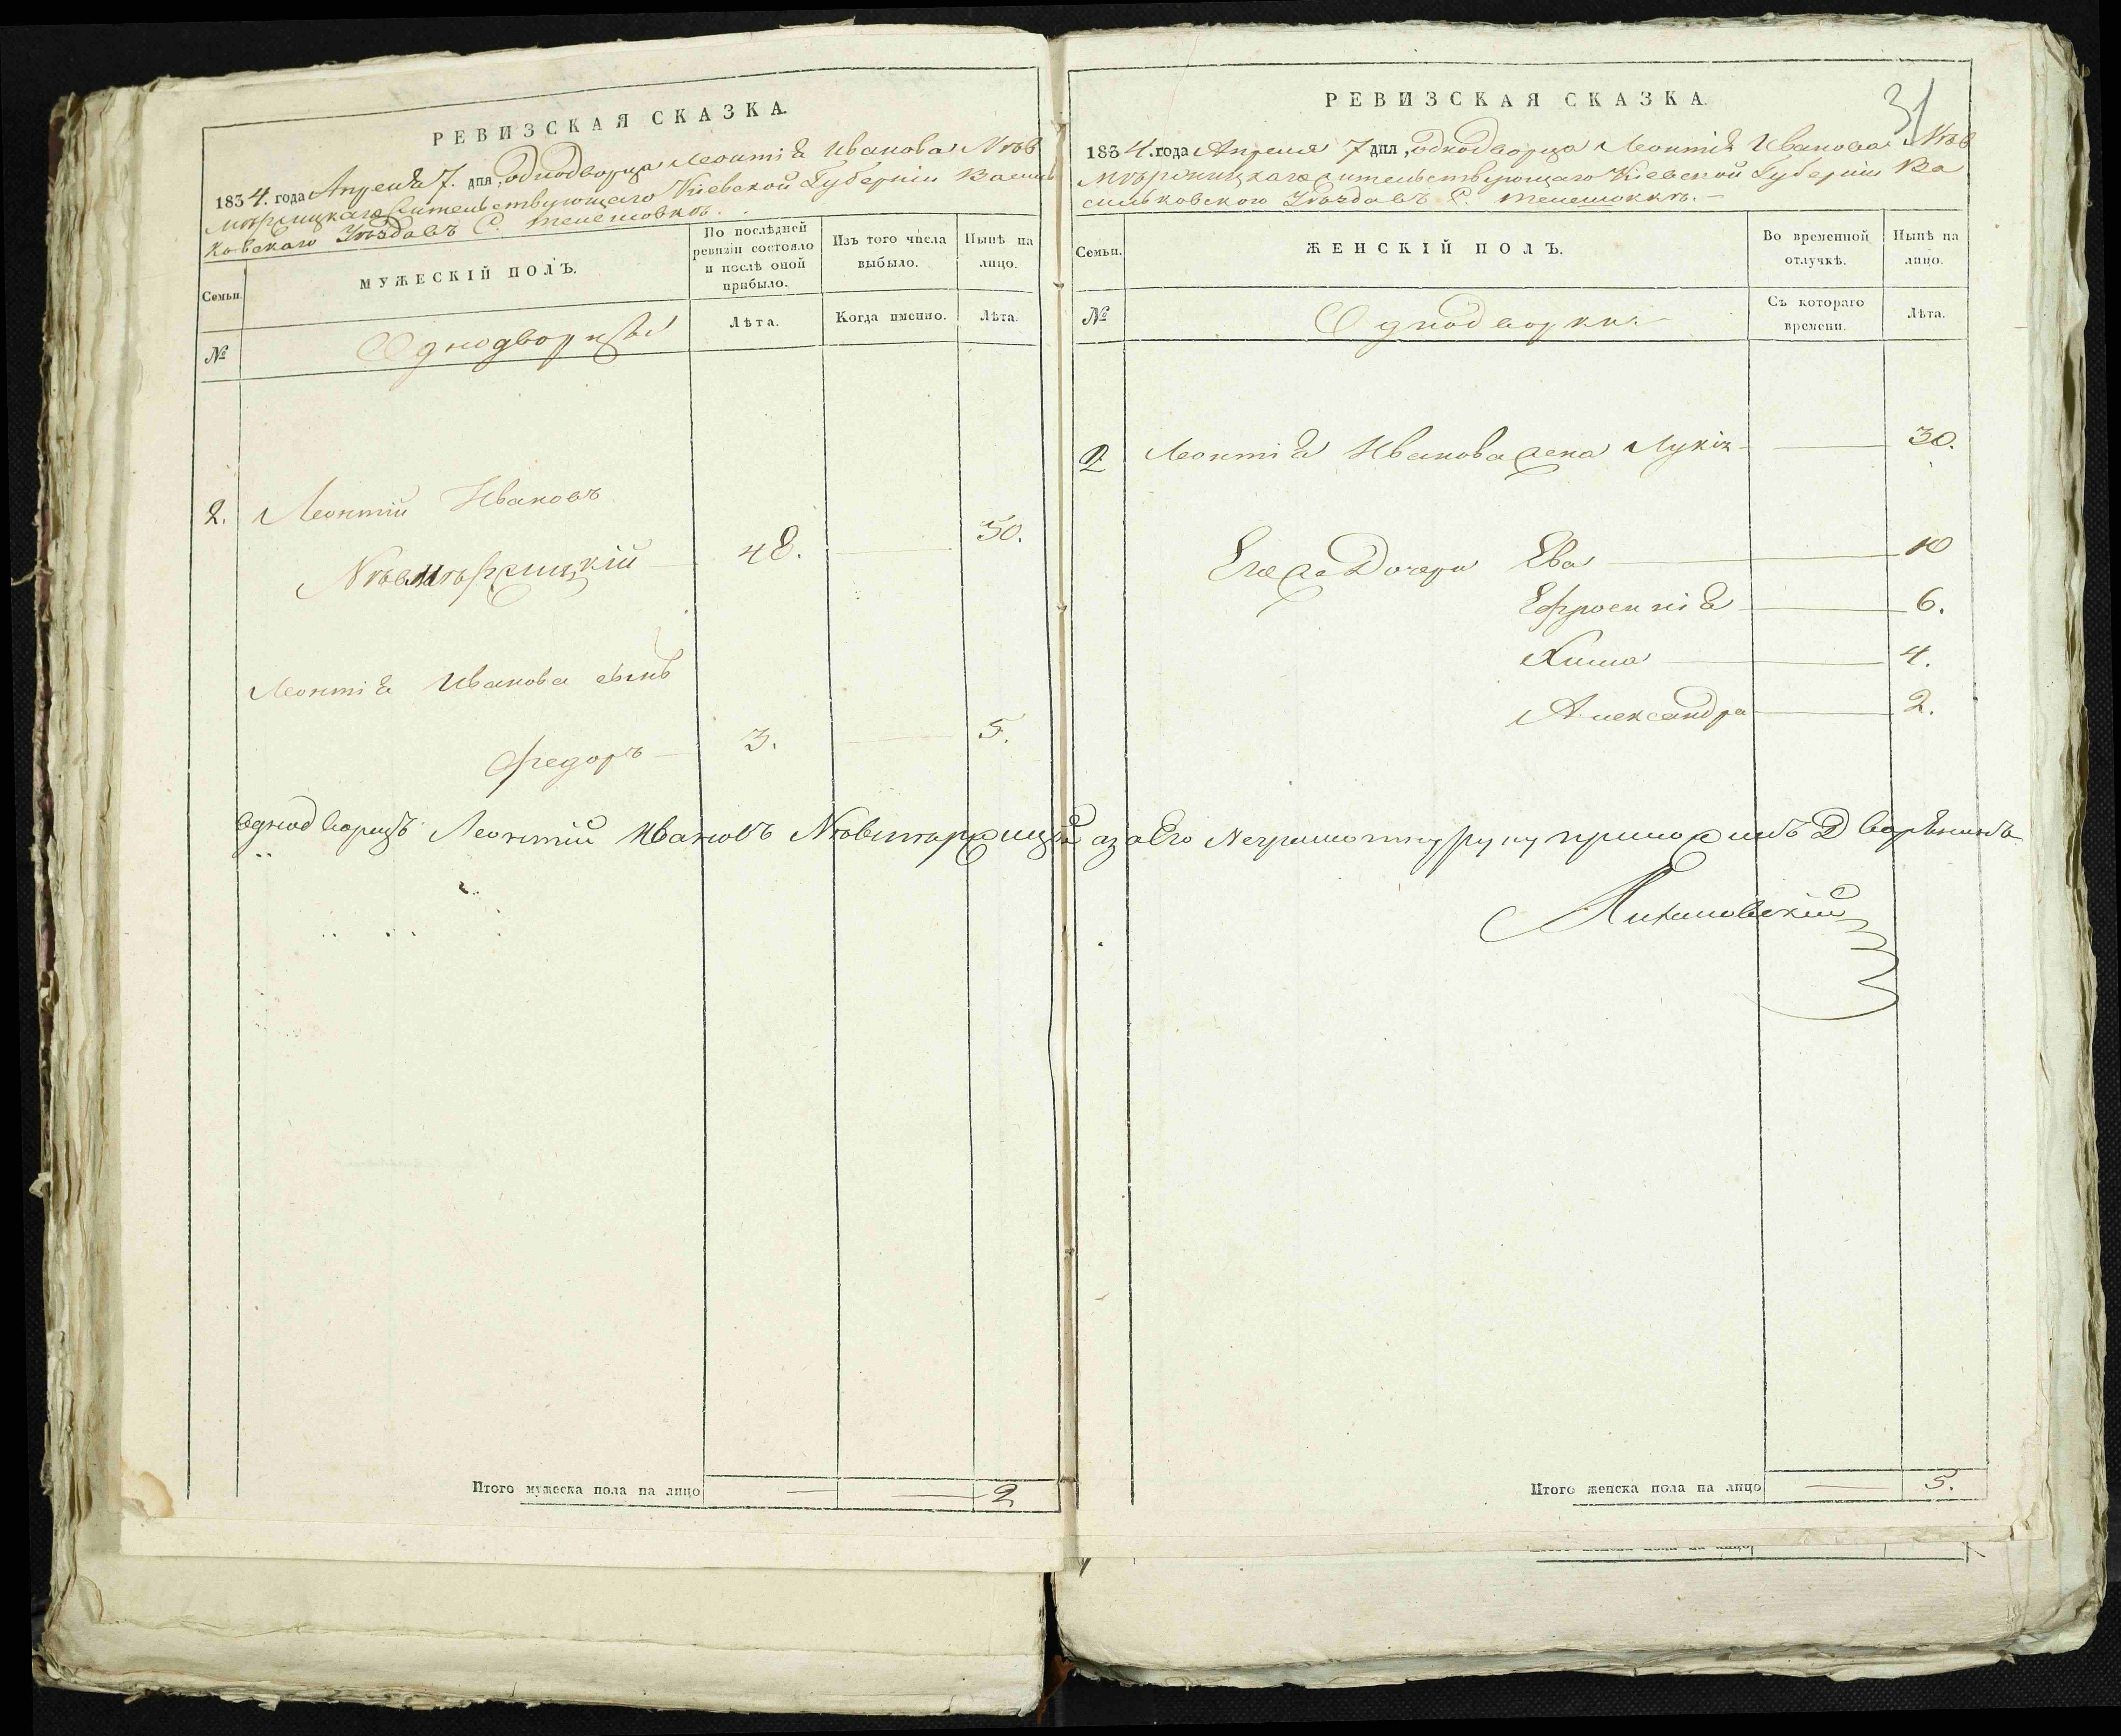 РЕВИЗСКАЯ СКАЗКА.
1834. года Апреля 7. дня, однодворца Леонтія Иванова
жительствующаго Кіевской Губерніи Василь
ковскаго Уѣзда въ С.
Семьи.
МУЖЕСКІЙ ПОЛЪ.
По послѣдней ревизіи состояло и послѣ оной прибыло.
Изъ того числа выбыло.
Нынѣ на лицо.
№
Однодворцы
Лѣта.
Когда именно.
Лѣта.
2. Леонтій Ивановъ
48. 50.
Леонтія Иванова сынъ
Федоръ 3. 5.
Итого мужеска пола на лицо 2
31
РЕВИЗСКАЯ СКАЗКА.
1834. года Апреля 7 дня, однодворца Леонтія Иванова
жительствующаго Кіевской Губерніи Ва
сильковского Уѣзда въ С.
Семьи.
ЖЕНСКІЙ ПОЛЪ.
Во временной отлучкѣ.
Нынѣ на лицо.
№
Однодворки
Съ котораго времени.
Лѣта.
2 Леонтія Иванова жена 30.
Его же Дочери Ева 10
Ефросинія 6.
4.
Александра 2.
Однодворецъ Леонтій Ивановъ а за Его Неграмотну руку приложилъ Дворянинъ
Итого женска пола на лицо 5.